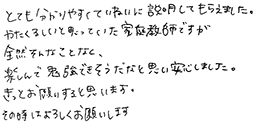 とても分かりやすくていねいに説明してもらえました。
やたくるしいと思っていた家庭教師ですが
全然そんなことなく、
楽しんで勉強できそうだなと思い安心しました。
きっとお願いすると思います。
その時はよろしくお願いします